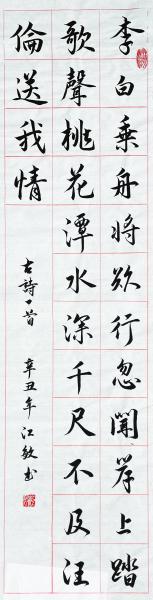 李白乘舟将欲行忽闻岸上踏
歌聲桃花潭水深千尺不及汪
倫送我情
古詩一首 辛丑年 江敏書